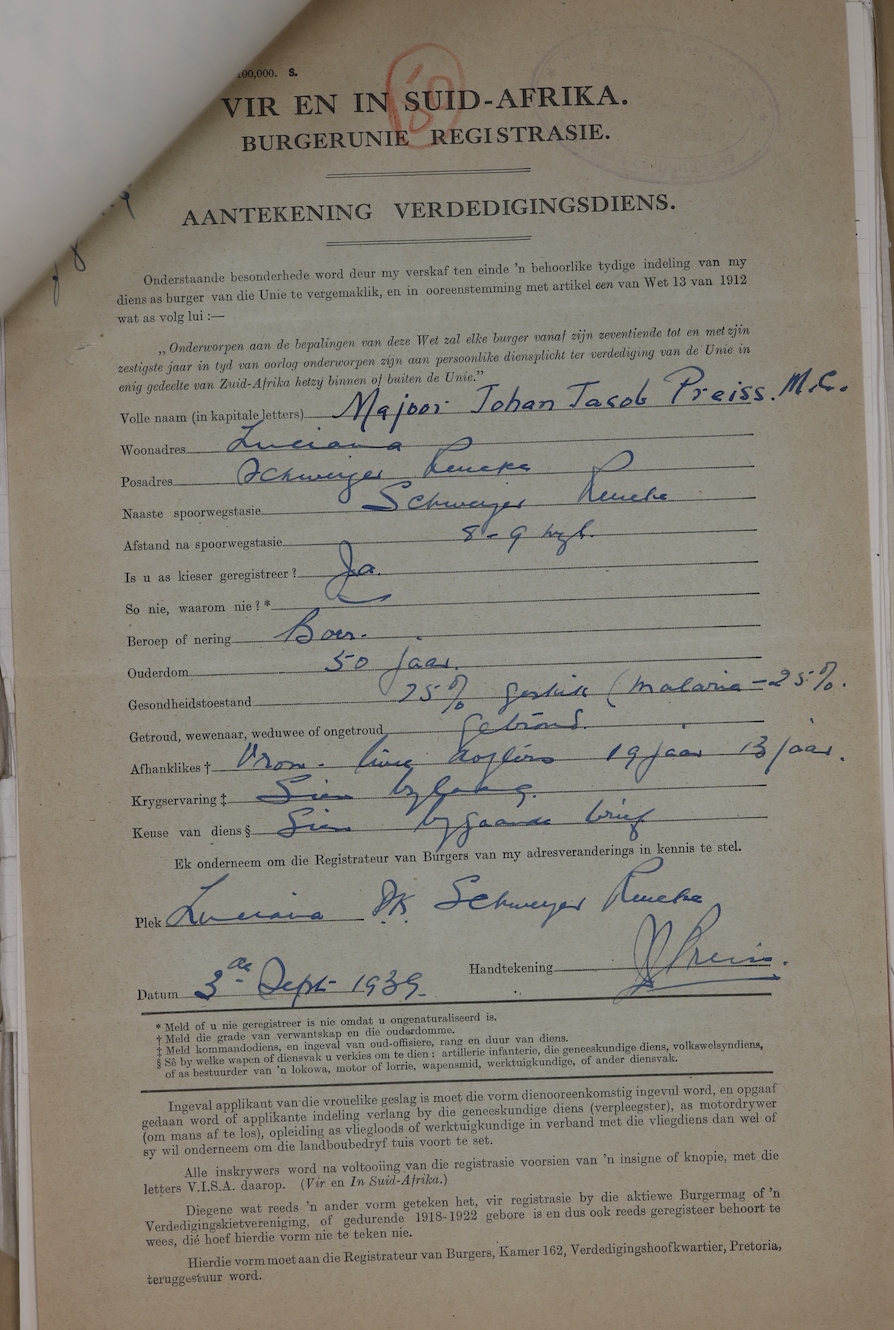 100,000. S.
VIR EN IN SUID-AFRIKA.
BURGERUNIE REGISTRASIE.
AANTEKENING VERDEDIGINGSDIENS.
Onderstaande besonderhede word deur my verskaf ten einde 'n behoorlike tydige indeling van my
diens as burger van die Unie te vergemaklik, en in ooreenstemming met artikel een van Wet 13 van 1912
wat as volg lui :—
„Onderworpen aan de bepalingen van deze Wet zal elke burger vanaf zijn zeventiende tot en met zjin
zestigste jaar in tyd van oorlog onderworpen zijn aan persoonlike diensplicht ter verdediging van de Unie in
enig gedeelte van Zuid-Afrika hetzy binnen of buiten de Unie."
Volle naam (in kapitale letters) Majoor Johan Jacob Preiss. M.C.
Woonadres Luciana
Posadres Schweizer Reneke
Naaste spoorwegstasie Schweizer Reneke
Afstand na spoorwegstasie 8-9 myl.
Is u as kieser geregistreer? Ja.
So nie, waarom nie?* —
Beroep of nering Boer.
Ouderdom 50 jaar.
Gesondheidstoestand 75% geskik (malaria – 25%.
Getroud, wewenaar, weduwee of ongetroud getroud.
Afhanklikes † Vrou - twee dogters 19 jaar 13 jaar.
Krygservaring ‡ Sien bylaag.
Keuse van diens § Sien bygaande brief
Ek onderneem om die Registrateur van Burgers van my adresveranderings in kennis te stel.
Plek Luciana PK Schweizer Reneke
Handtekening JJPreiss.
Datum 3de Sept 1939.
* Meld of u nie geregistreer is nie omdat u ongenaturaliseerd is.
† Meld die grade van verwantskap en die ouderdomme.
‡ Meld kommandodiens, en ingeval van oud-offisiere, rang en duur van diens.
§ Sê by welke wapen of diensvak u verkies om te dien : artillerie infanterie, die geneeskundige diens, volkswelsyndiens,
of as bestuurder van 'n lokowa, motor of lorrie, wapensmid, werktuigkundige, of ander diensvak.
Ingeval applikant van die vrouelike geslag is moet die vorm dienooreenkomstig ingevul word, en opgaaf
gedaan word of applikante indeling verlang by die geneeskundige diens (verpleegster), as motordrywer
(om mans af te los), opleiding as vliegloods of werktuigkundige in verband met die vliegdiens dan wel of
sy wil onderneem om die landboubedryf tuis voort te set.
Alle inskrywers word na voltooiing van die registrasie voorsien van 'n insigne of knopie, met die
letters V.I.S.A. daarop. (Vir en In Suid-Afrika.)
Diegene wat reeds 'n ander vorm geteken het, vir registrasie by die aktiewe Burgermag of 'n
Verdedigingskietvereniging, of gedurende 1918-1922 gebore is en dus ook reeds geregisteer behoort te
wees, dié hoef hierdie vorm nie te teken nie.
Hierdie vorm moet aan die Registrateur van Burgers, Kamer 162, Verdedigingshoofkwartier, Pretoria,
teruggestuur word.